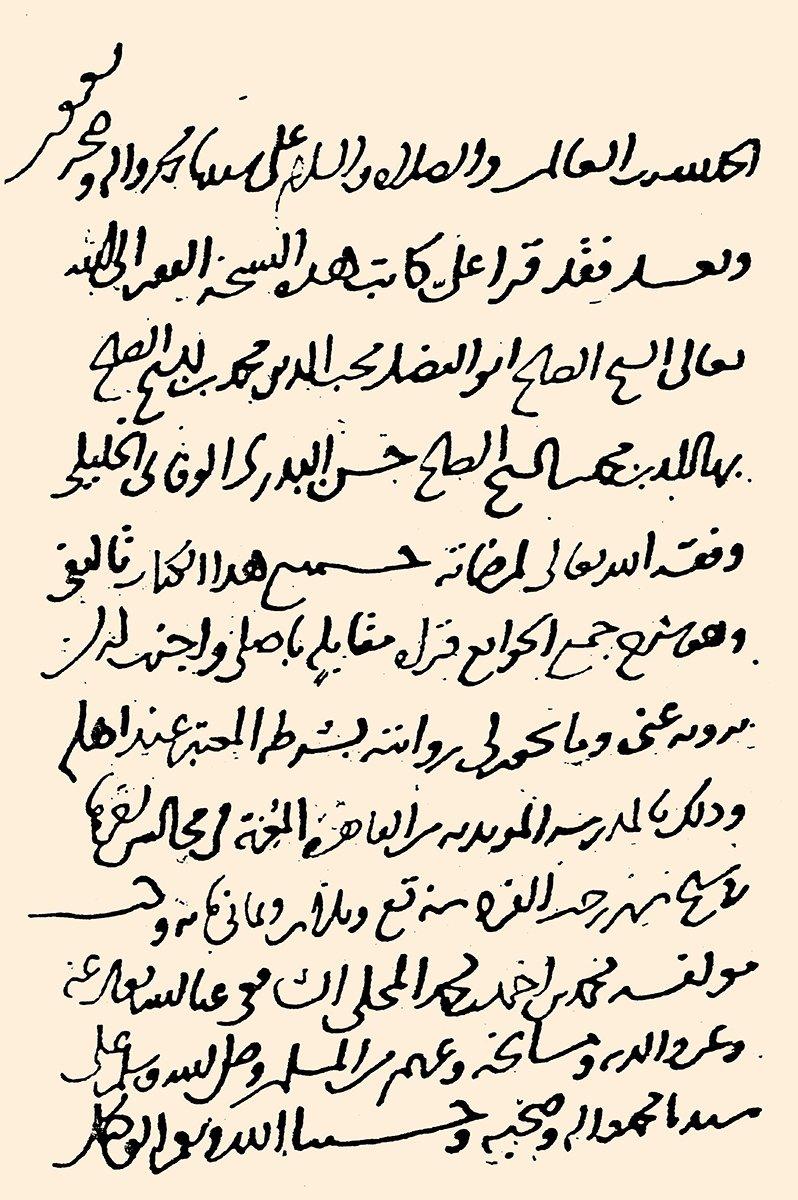 الحمد لله رب العالمين والصلاة والسلام على سيدنا محمد وآله وصحبه
وبعد فقد قرأ علي كاتب هذه النسخة الفقير الى الله
تعالى الشيخ الصالح ابو الفضل محب الدين محمد بن الشيخ الصالح
بهاء الدين محمد بن الشيخ الصالح حسن البدري الوفائي الخليلي
وفقه الله تعالى لمرضاته جميع هذا الكتاب تاليفي
وهو شرح جمع الجوامع قراه مقابلة باصلي واجزت له ان
يرويه عني وما يجوز لي روايته بشرطه المعتبر عند اهله
وذلك بالمدرسة المويدية من القاهرة المعزية في مجالس اخرها
تاسع شهر رجب الفرد سنة تسع وثلاثين وثمانمائة وكتب
مولفه محمد بن احمد بن محمد المحلي الشافعي عفا الله تعالى عنه
وعن والديه ومشايخه وعنهم من المسلمين وصلى الله وسلم على
سيدنا محمد وآله وصحبه وحسبنا الله ونعم الوكيل